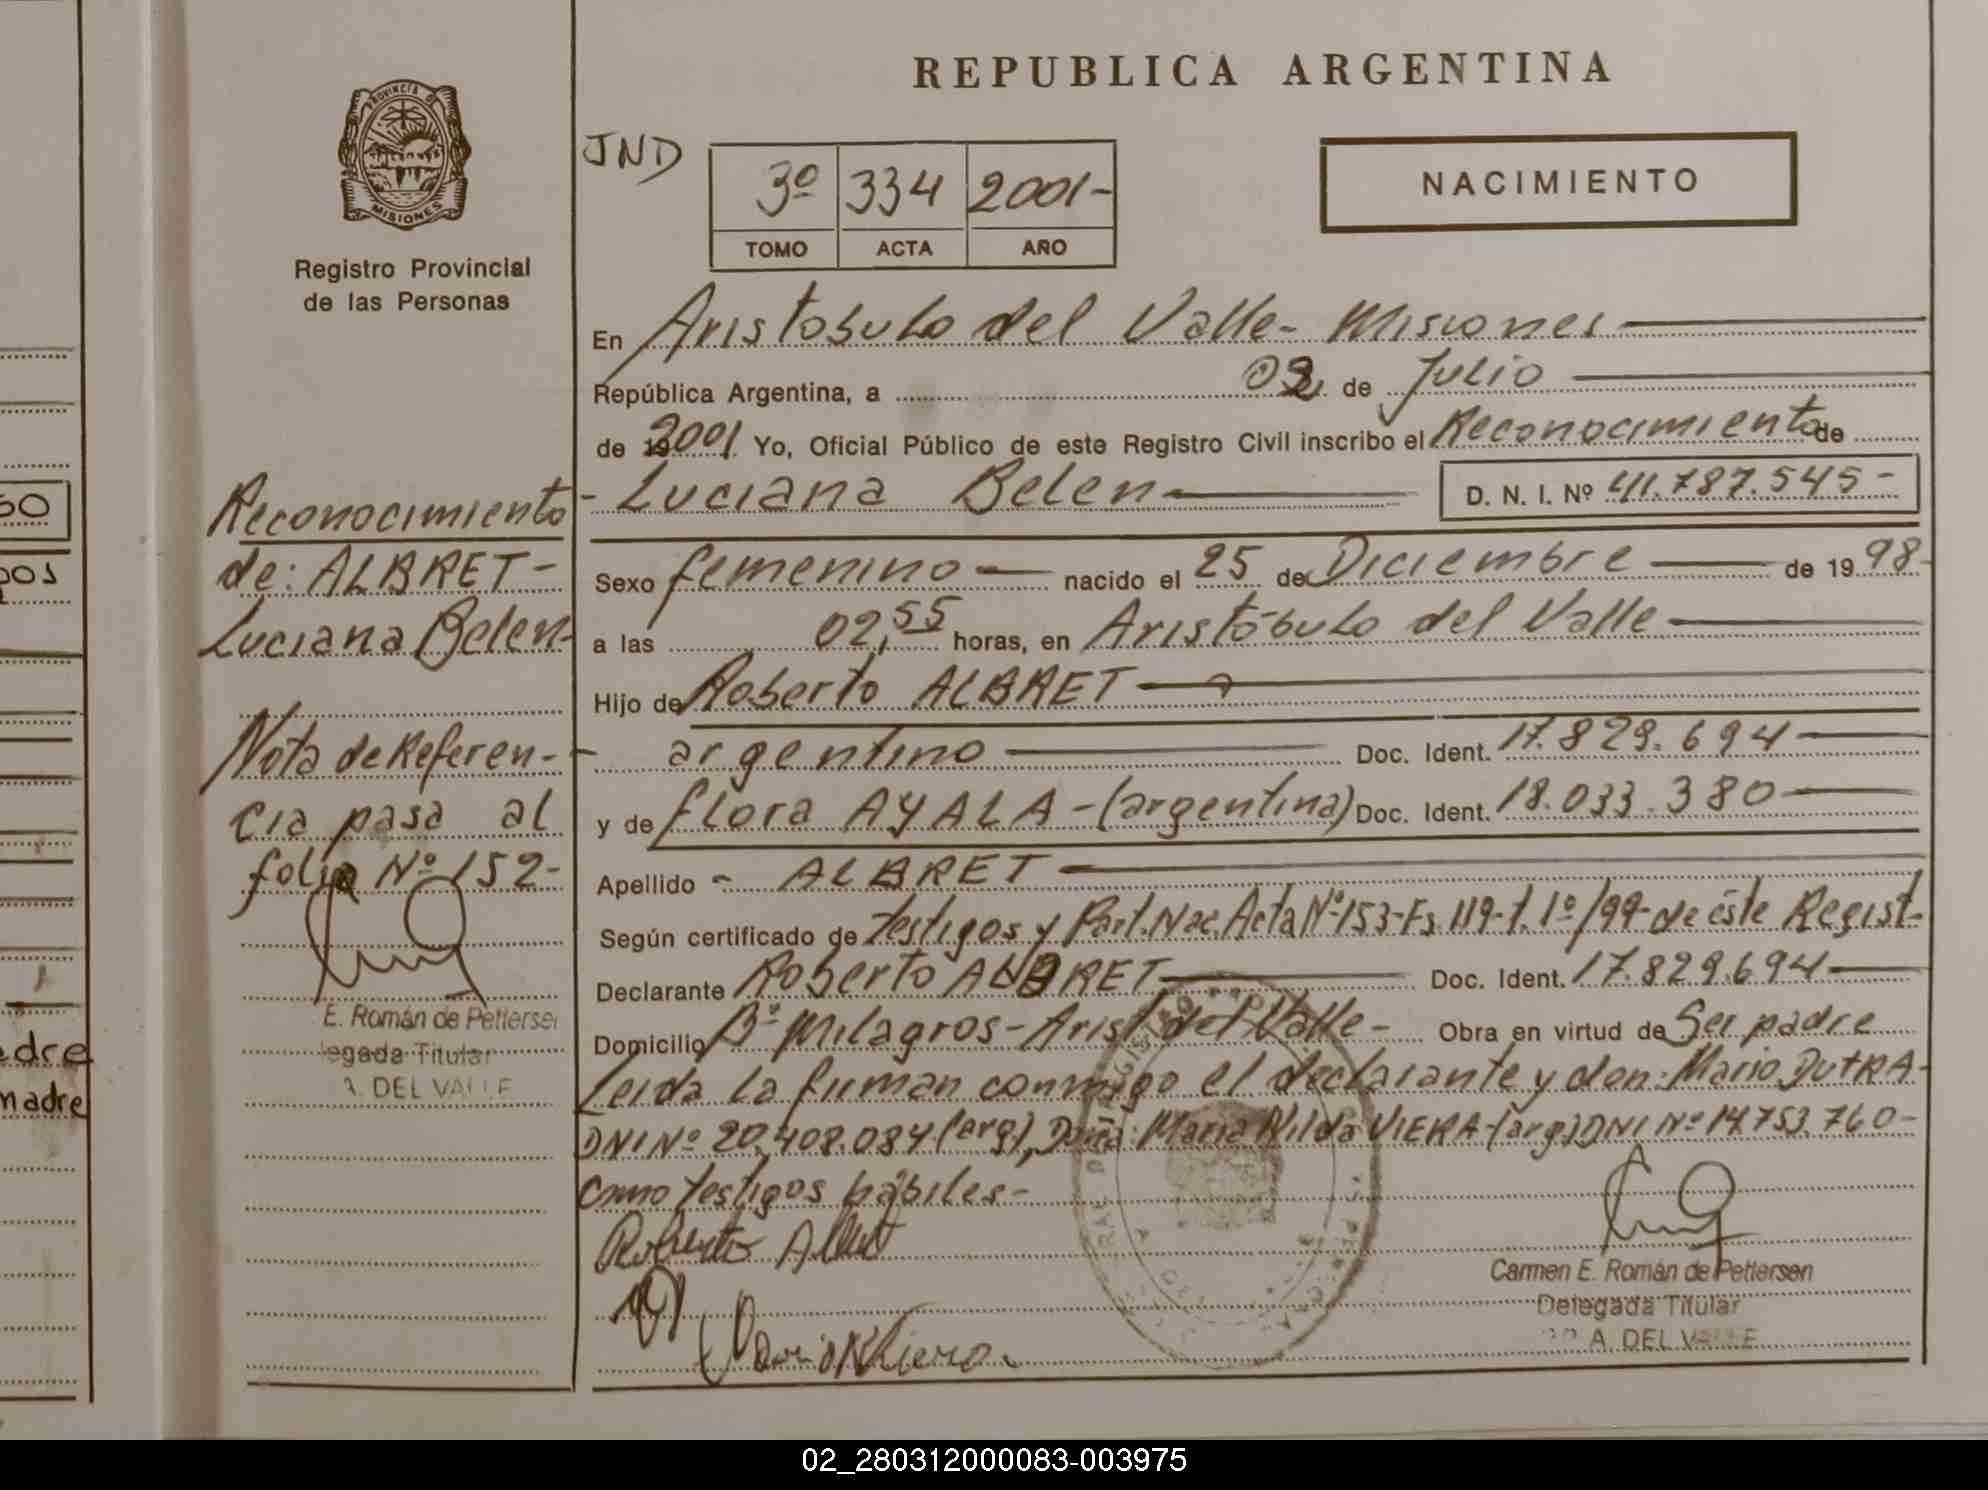 REPUBLICA ARGENTINA
PROVINCIA DE
MISIONES
Registro Provincial
de las Personas
JND
3º 334 2001-
TOMO ACTA AÑO
NACIMIENTO
En Aristobulo del Valle- Misiones
República Argentina, a 02 de Julio
de 2001 Yo, Oficial Público de este Registro Civil inscribo el Reconocimiento de
- Luciana Belen D. N. I. Nº 41.787.545-
Sexo femenino nacido el 25 de Diciembre de 1998-
a las 02,55 horas, en Aristóbulo del Valle
Hijo de Roberto ALBRET
argentino Doc. Ident. 17.829.694
y de flora AYALA-(argentina) Doc. Ident. 18.033.380
Apellido - ALBRET
Según certificado de testigos y Part. Nac. Acta Nº 153-Fs. 119-t. 1º/99-de éste Regist-
Declarante Roberto ALBRET Doc. Ident. 17.829.694
Domicilio Bº Milagros-Arist. del Valle- Obra en virtud de Ser padre
Leida la firman conmigo el declarante y don: Mario DUTRA-
DNI Nº 20.408.084 (arg), Doña: Maria Nilda VIERA-(arg) DNI Nº 14.753.760-
como testigos hábiles-
Roberto Albret
Carmen E. Román de Pettersen
Delegada Titular
A. DEL VALLE
Reconocimiento
de: ALBRET-
Luciana Belen-
Nota de Referen-
cia pasa al
folio Nº 152-
E. Román de Petterse
legada Titular
A DEL VALLE
50
001
adre
madre
02_280312000083-003975